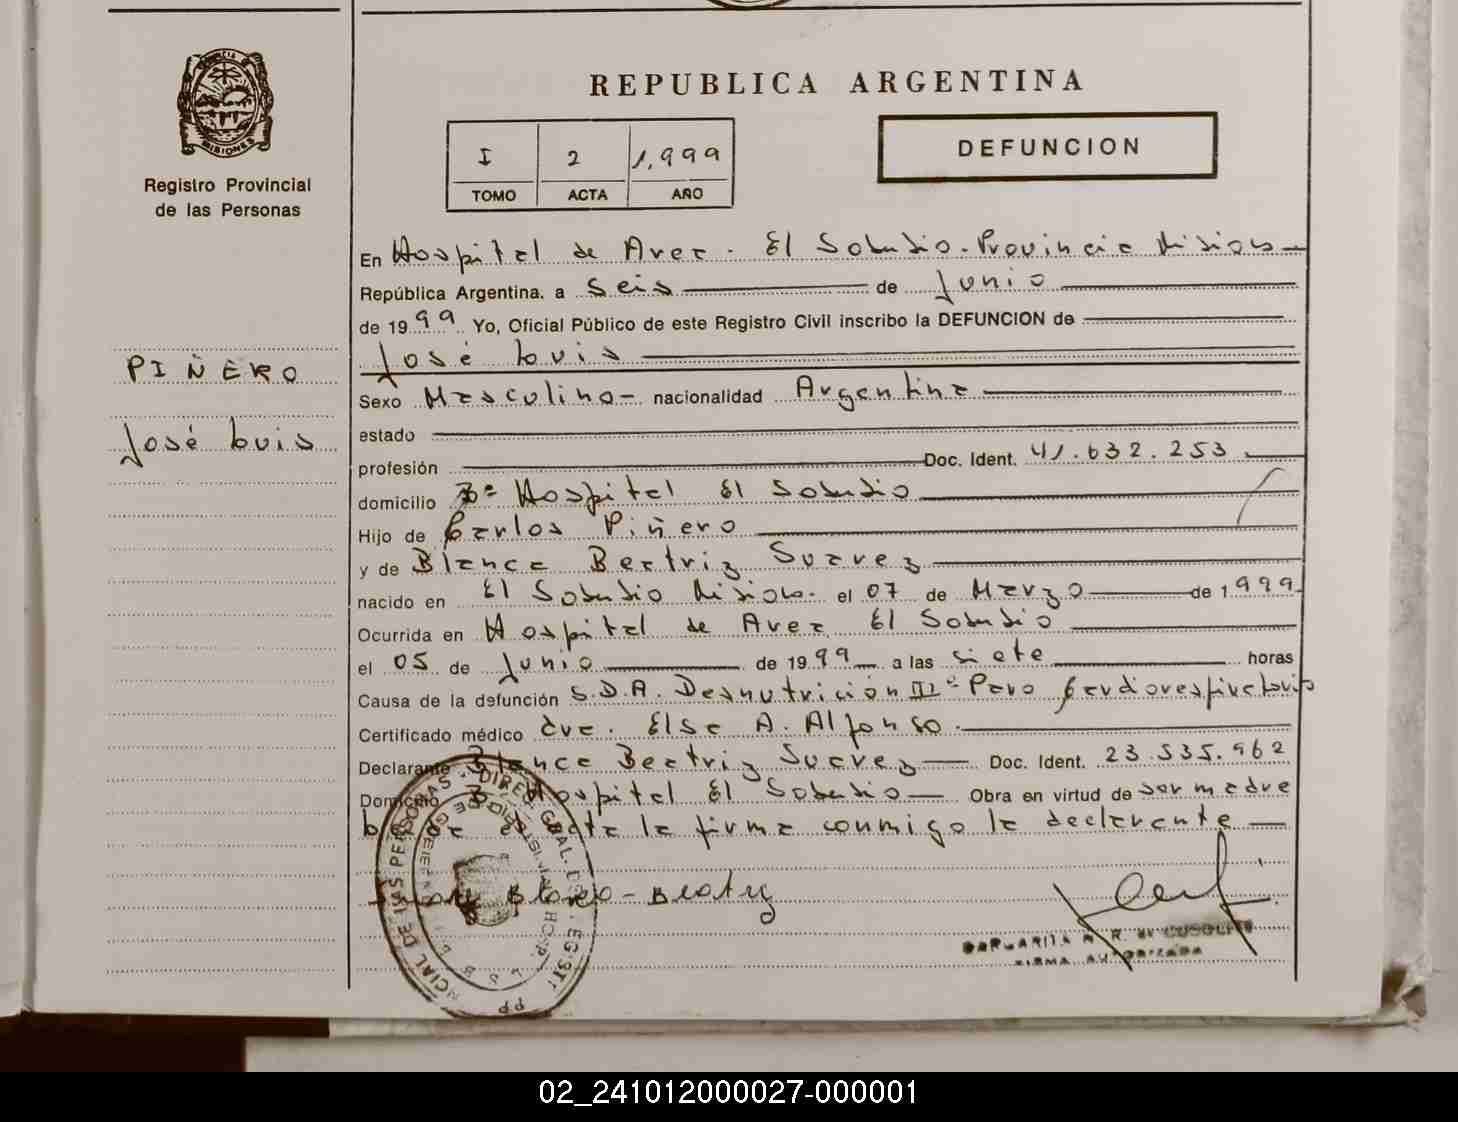 REPUBLICA ARGENTINA
PROVINCIA DE MISIONES
Registro Provincial
de las Personas
I 2 1,999
TOMO ACTA AÑO
DEFUNCION
En Hospital de Area. El Soberbio. Provincia Misiones
República Argentina. a seis de Junio
de 1999 Yo, Oficial Público de este Registro Civil inscribo la DEFUNCION de
PIÑERO
José Luis
José Luis
Sexo Masculino nacionalidad Argentina
estado
profesión Doc. Ident. 41.632.253
domicilio Bº Hospital El Soberbio
Hijo de Carlos Piñero
y de Blanca Beatriz Suarez
nacido en El Soberbio Misiones el 07 de Marzo de 1999
Ocurrida en Hospital de Area El Soberbio
el 05 de Junio de 1999 a las siete horas
Causa de la defunción S.D.A. Desnutrición IIIº Paro Cardiorespiratorio
Certificado médico dra. Elsa A. Alfonso
Declarante Blanca Beatriz Suarez Doc. Ident. 23.535.962
Domicilio Bº Hospital El Soberbio Obra en virtud de ser madre
la firma conmigo la declarante
Blanca Beatriz
MARGARITA R. DE
FIRMA AUTORIZADA
02_241012000027-000001